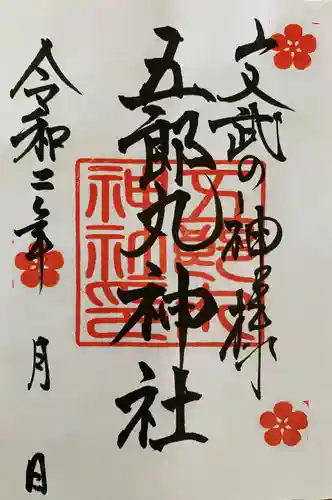 文武の神様
五郎丸神社
令和二年
月
日
五郎丸
神社印